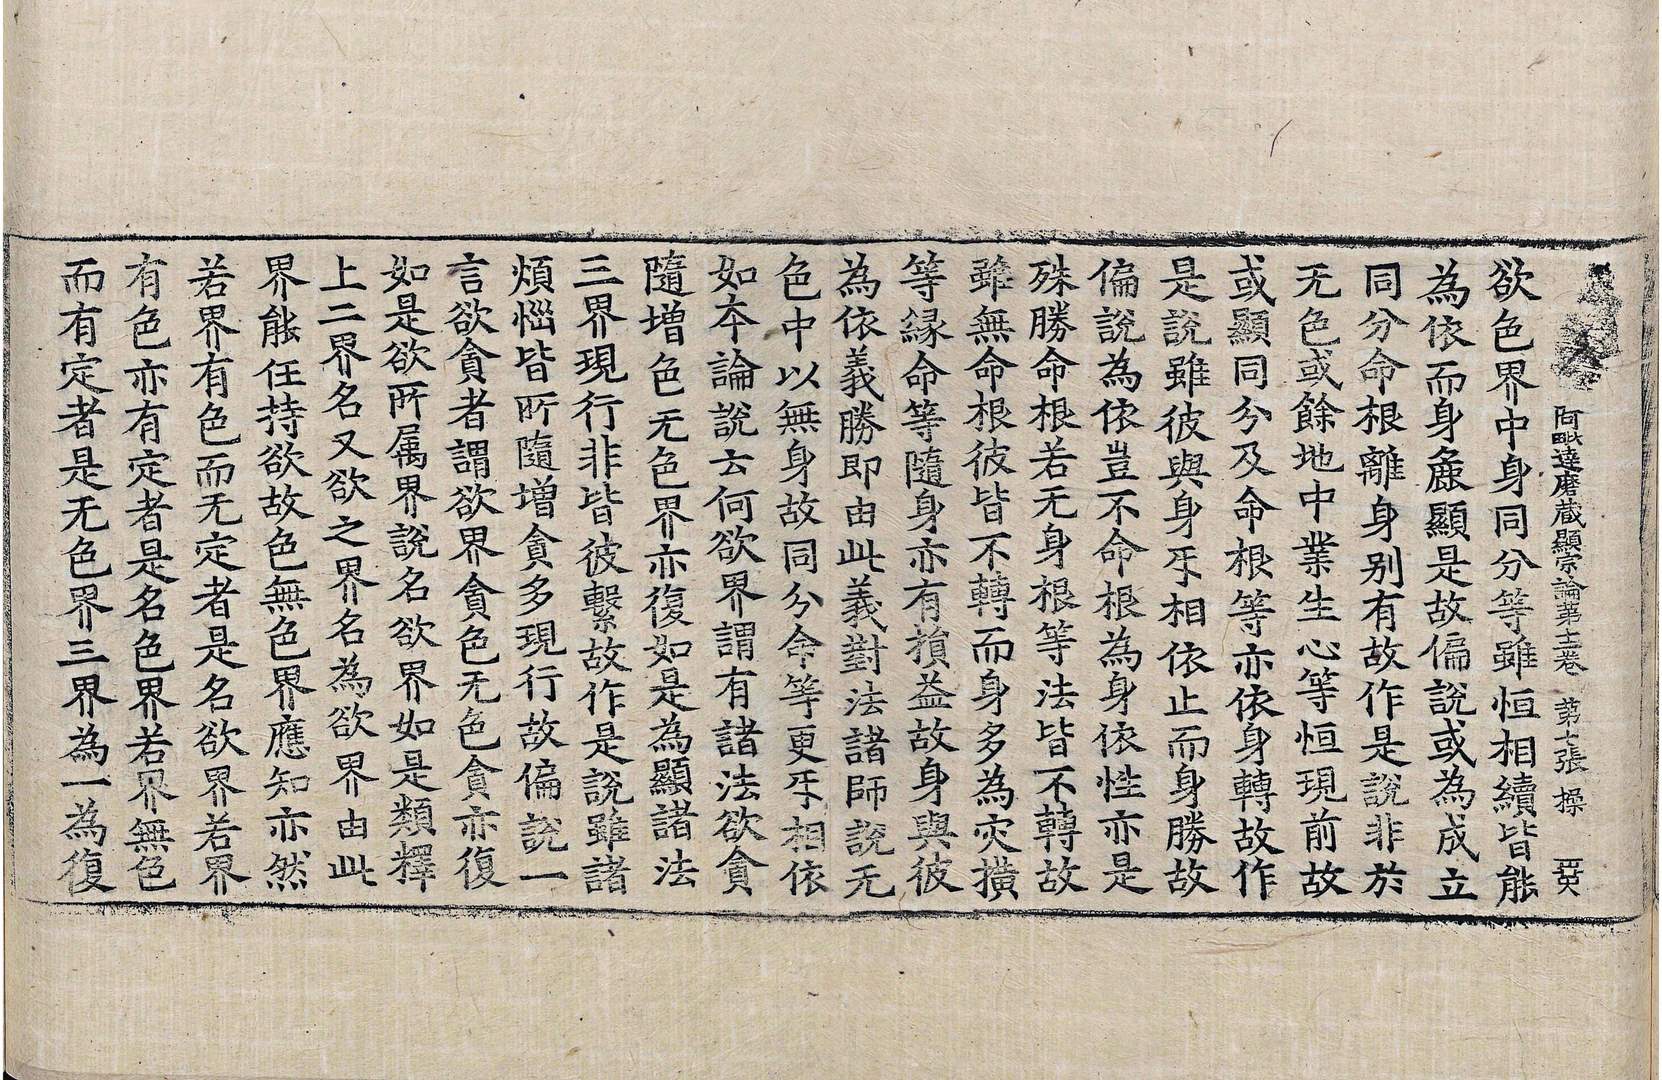 阿毗達磨蔵顯宗論第十二卷 第十張 操
欲色界中身同分等雖恒相續皆能
為依而身麁顯是故偏說或為成立
同分命根離身别有故作是說非於
无色或餘地中業生心等恒現前故
或顯同分及命根等亦依身轉故作
是說雖彼與身㸦相依止而身勝故
偏說為依豈不命根為身依性亦是
殊勝命根若无身根等法皆不轉故
雖無命根彼皆不轉而身多為灾擴
等縁命等隨身亦有損益故身與彼
為依義勝即由此義對法諸師說无
色中以無身故同分命等更㸦相依
如夲論說云何欲界謂有諸法欲貪
隨增色无色界亦復如是為顯諸法
三界現行非皆彼繫故作是說雖諸
煩惱皆所隨增貪多現行故偏說一
言欲貪者謂欲界貪色无色貪亦復
如是欲所属界說名欲界如是類釋
上二界名又欲之界名為欲界由此
界能任持欲故色無色界應知亦然
若界有色而无定者是名欲界若界
有色亦有定者是名色界若界無色
而有定者是无色界三界為一為復